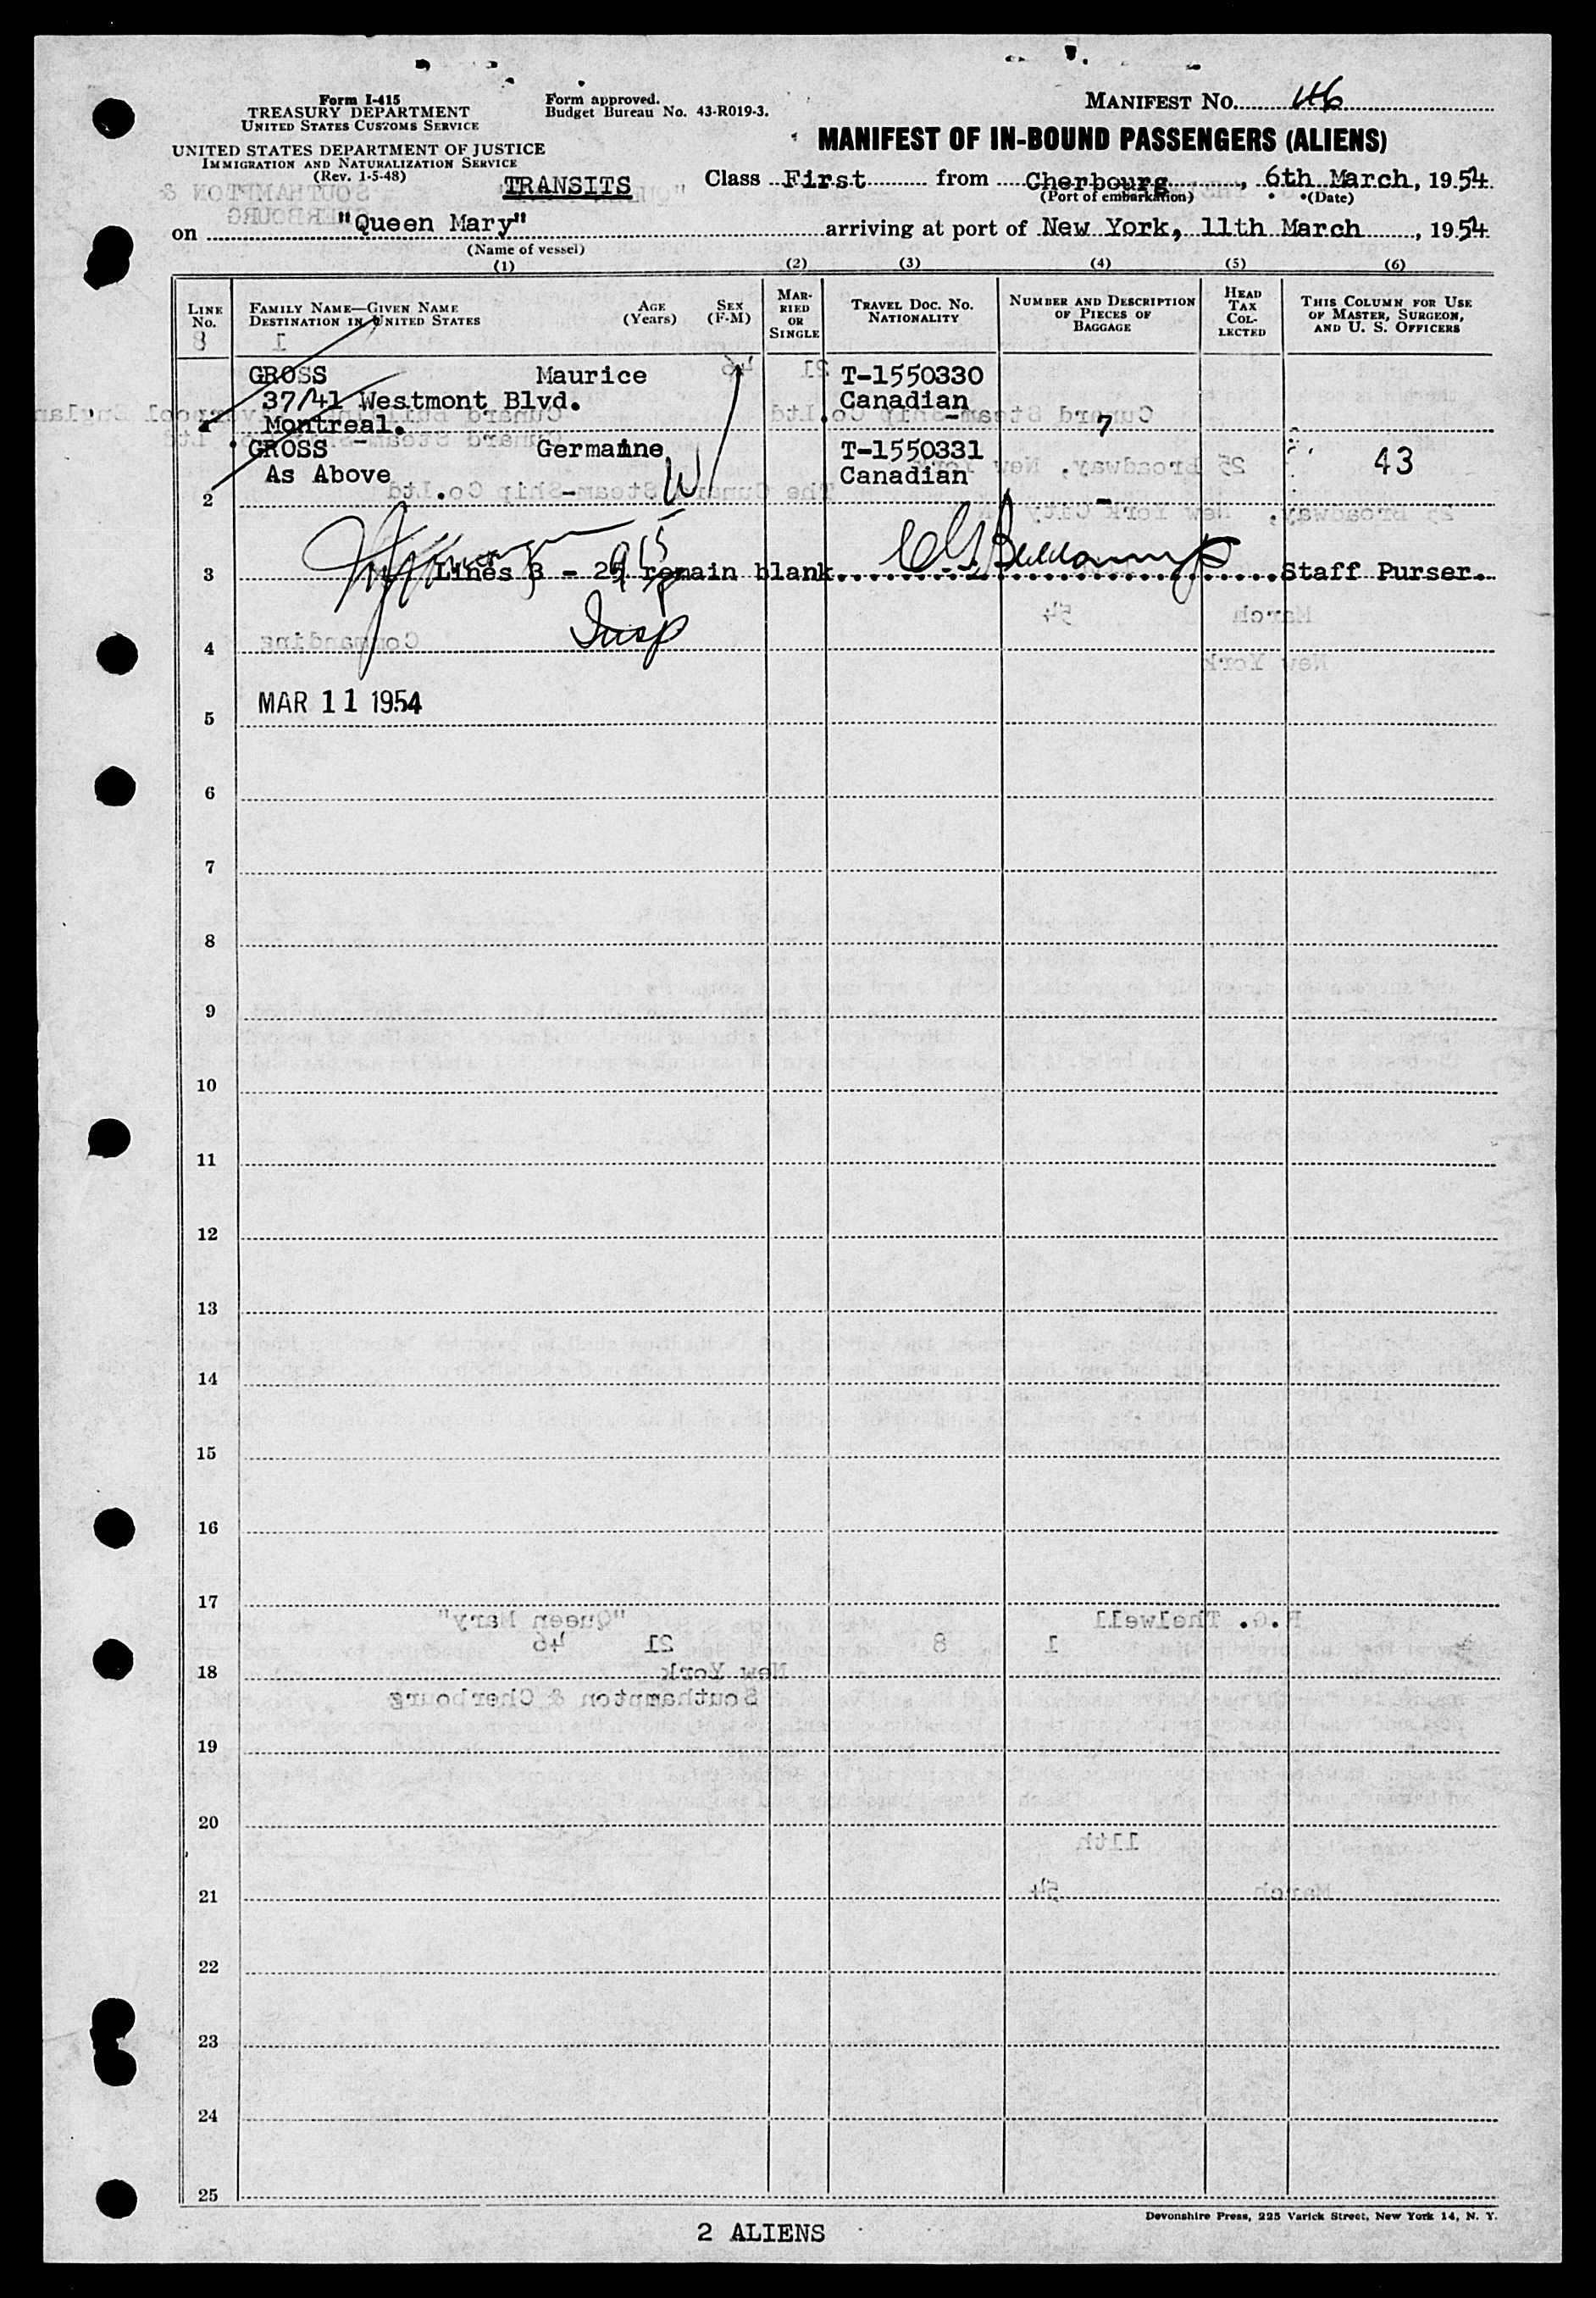 Form I-415
TREASURY DEPARTMENT
UNITED STATES CUSTOMS SERVICE
UNITED STATES DEPARTMENT OF JUSTICE
IMMIGRATION AND NATURALIZATION SERVICE
(Rev. 1-5-48)
Form approved.
Budget Bureau No. 43-R019-3.
MANIFEST NO. 46
MANIFEST OF IN-BOUND PASSENGERS (ALIENS)
TRANSITS
Class First from Cherbourg, 6th March, 1954
(Port of embarkation) (Date)
on "Queen Mary" arriving at port of New York, 11th March, 1954
(Name of vessel)
(1) (2) (3) (4) (5) (6)
LINE NO.
FAMILY NAME—GIVEN NAME
DESTINATION IN UNITED STATES
AGE (Years)
SEX (F-M)
MARRIED OR SINGLE
TRAVEL DOC. NO.
NATIONALITY
NUMBER AND DESCRIPTION OF PIECES OF BAGGAGE
HEAD TAX COLLECTED
THIS COLUMN FOR USE OF MASTER, SURGEON, AND U. S. OFFICERS
GROSS Maurice T-1550330
37/41 Westmont Blvd. Canadian
1 Montreal. - 7
GROSS Germaine T-1550331
As Above Canadian 43
2 - -
W
3 Lines 3 - 25 remain blank. Staff Purser.
Insp
4
MAR 11 1954
5
6
7
8
9
10
11
12
13
14
15
16
17
18
19
20
21
22
23
24
25
Devonshire Press, 225 Varick Street, New York 14, N. Y.
2 ALIENS